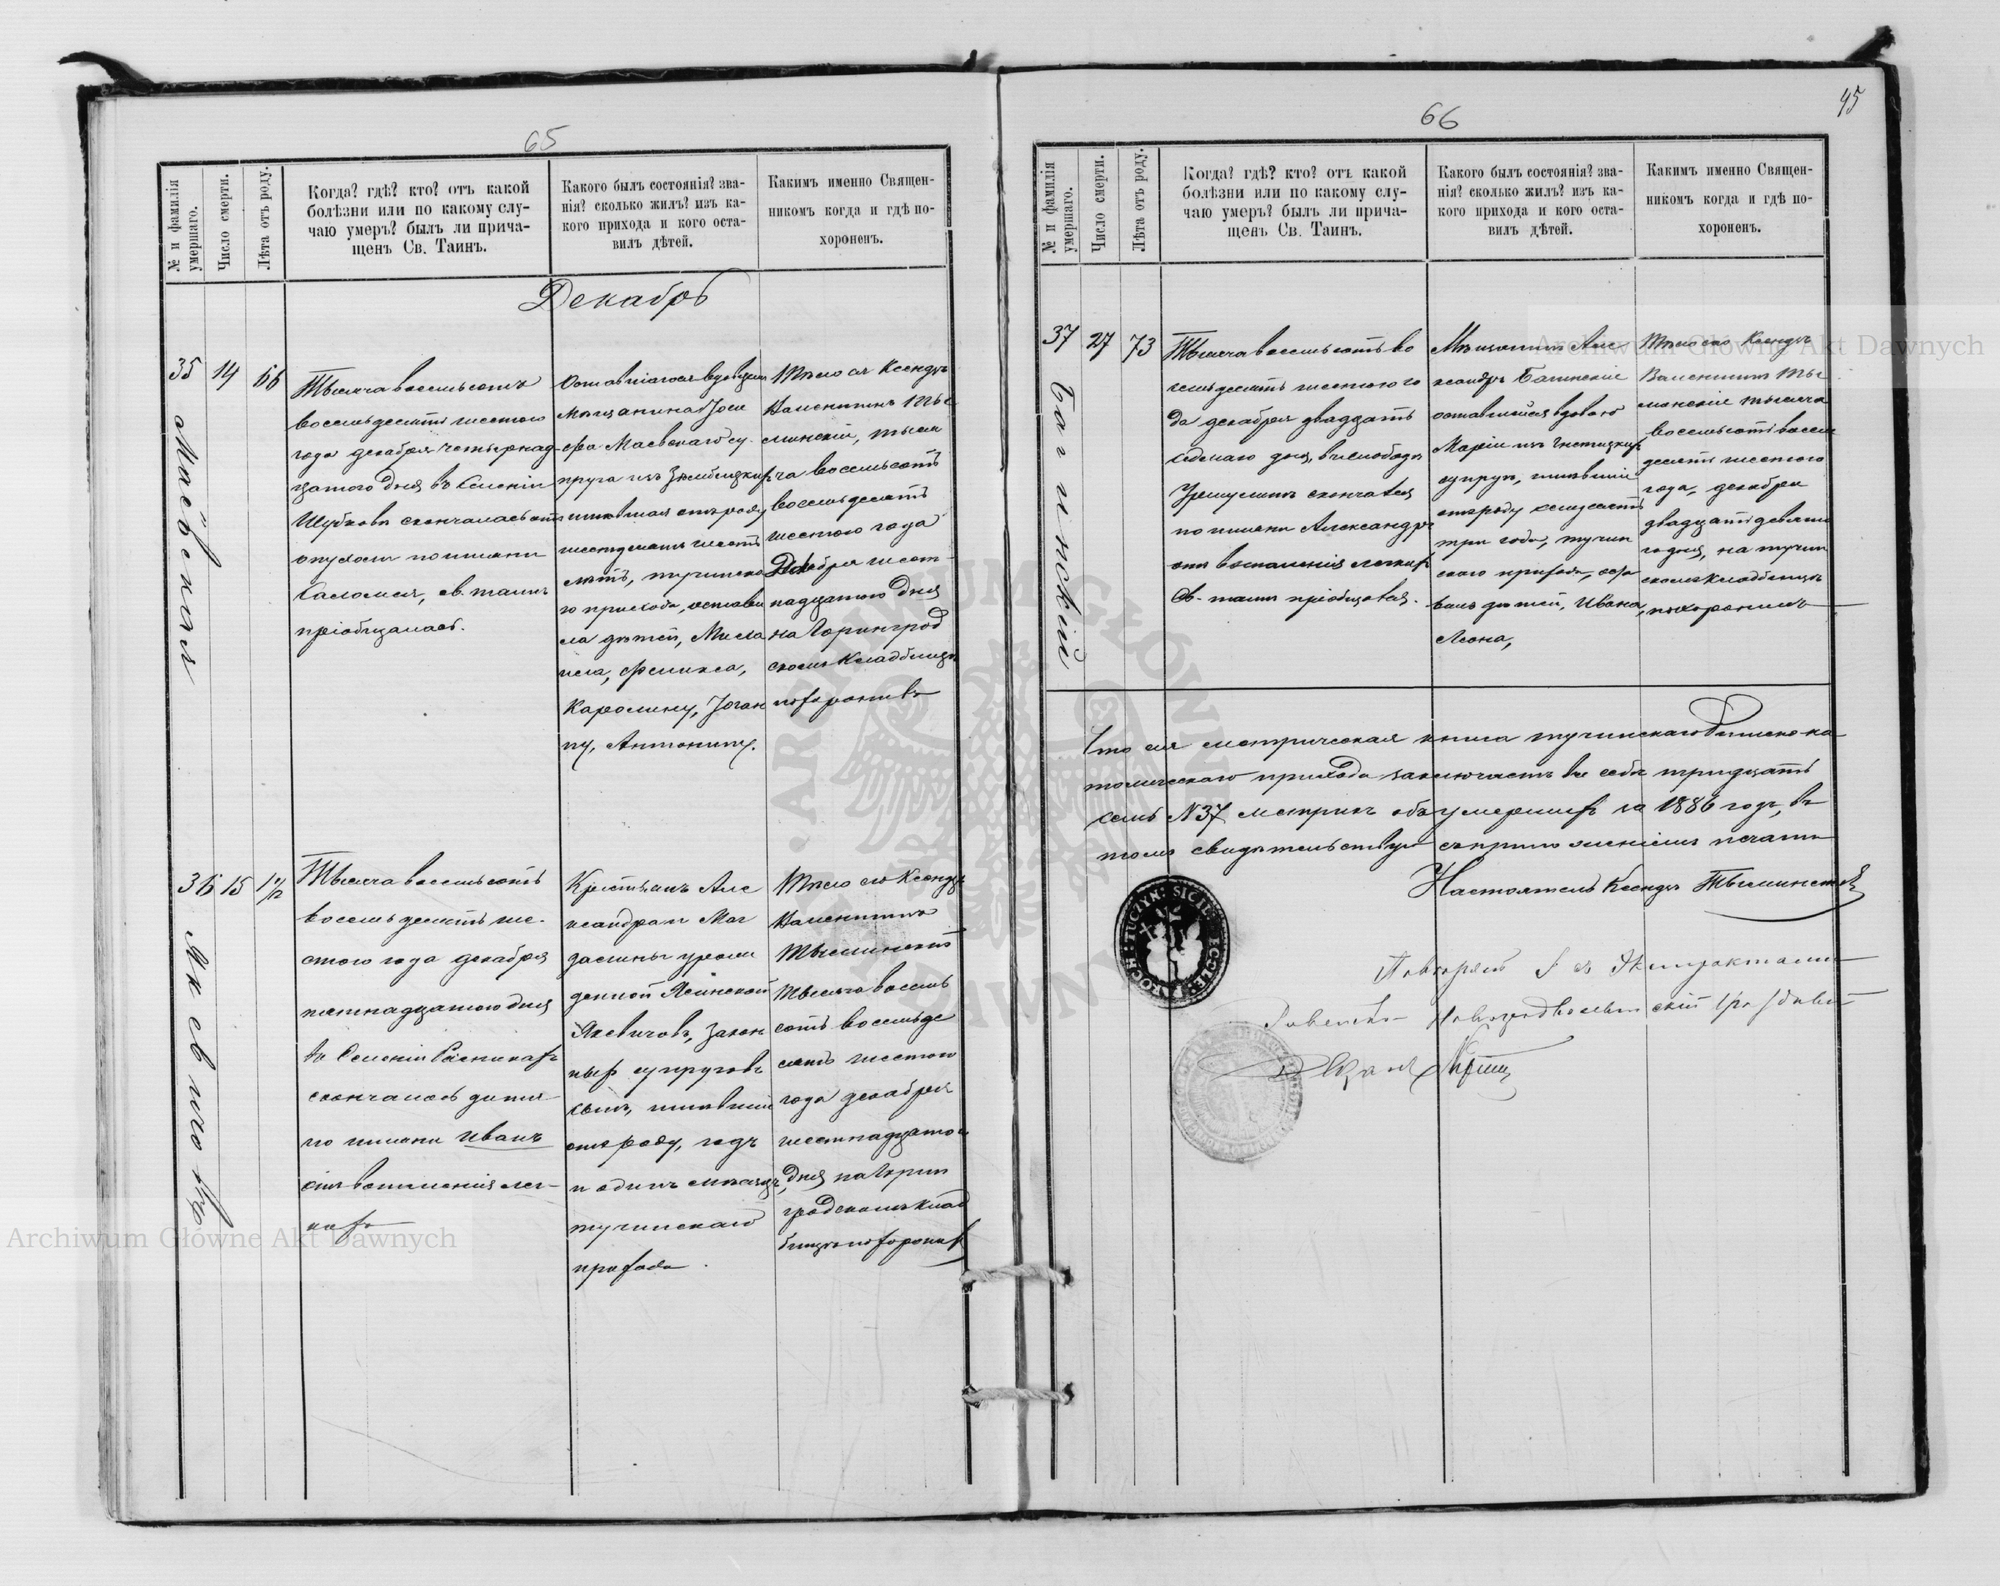 65
№ и фамилія умершаго.
Число смерти.
Лѣта отъ роду.
Когда? гдѣ? кто? отъ какой
болѣзни или по какому слу-
чаю умеръ? былъ ли прича-
щенъ Св. Таинъ.
Какого былъ состоянія? зва-
нія? сколько жилъ? изъ ка-
кого прихода и кого оста-
вилъ дѣтей.
Какимъ именно Священ-
никомъ когда и гдѣ по-
хороненъ.
Декабрь
35
Маевская
14
66
Тысяча восемьсотъ
восемьдесятъ шестого
года декабря четырнад-
цатого дня въ Селеніи
Шубковъ скончалась отъ
опухоли по имени
Саломея, св. таинъ
пріобщалась.
Оставшагося вдовцемъ
мѣщанина Іоси
фа Маевскаго су-
пруга изъ
жившая отъ роду
шестьдесятъ шесть
лѣтъ, тучинска
го прихода, остави
ла дѣтей,
Феликса,
Каролину, Іоган
ну, Антонину.
Тѣло ея Ксендзъ
Валентинъ Ты
минскій, тыся
ча восемьсотъ
восемьдесятъ
шестого года
Декабря шест-
надцатого дня
на Горинград
скомъ кладбищѣ
похоронивъ
36
Яксевичъ
15
1 1/12
Тысяча восемьсотъ
восемьдесятъ ше-
стого года декабря
пятнадцатого дня
въ Селеніи
скончалось дитя
по имени Иванъ
отъ воспаленія лег-
кихъ
Крестьянъ Але
ксандра и Маг
далины урожи
денной Ясинской
Яксевичовъ, закон
ныхъ супруговъ
сынъ, жившій
отъ роду, годъ
и одинъ мѣсяцъ,
тучинскаго
прихода.
Тѣло его Ксендзъ
Валентинъ
Тыминскій
тысяча восемь
сотъ восемьде
сятъ шестого
года декабря
шестнадцатого
дня на Горин
градскомъ клад
бищѣ похоронилъ
66
45
№ и фамилія умершаго.
Число смерти.
Лѣта отъ роду.
Когда? гдѣ? кто? отъ какой
болѣзни или по какому слу-
чаю умеръ? былъ ли прича-
щенъ Св. Таинъ.
Какого былъ состоянія? зва-
нія? сколько жилъ? изъ ка-
кого прихода и кого оста-
вилъ дѣтей.
Какимъ именно Священ-
никомъ когда и гдѣ по-
хороненъ.
37
Багинскій
27
73
Тысяча восемьсотъ во
семьдесятъ шестого го
да декабря двадцать
седмаго дня, в слободѣ
скончался
по имени Александръ
отъ воспаленія легкихъ
Св. таинъ пріобщовся.
Мѣщанинъ Але
ксандръ Багинскій
оставшейся вдовою
Маріи изъ
супругъ, жившій
отъ роду семьдесятъ
три года, тучин
скаго прихода, оста
вилъ дѣтей, Ивана,
Леона,
Тѣло его Ксендзъ
Валентинъ Ты
минскій тысяча
восемьсотъ восемь
десятъ шестого
года, декабря
двадцать девята
го дня, на тучин
скомъ кладбищѣ
похоронилъ
Что сія метрическая книга тучинскаго Римско-ка-
толическаго прихода заключаетъ въ себѣ тридцать
семь №37 метрикъ объ умершихъ за 1886 годъ, въ
томъ свидѣтельствую съ приложеніемъ печати
Настоятель Ксендзъ Тыминскій
Archiwum Główne Akt Dawnych
Archiwum Główne Akt Dawnych
ARCHIWUM GŁÓWNE AKT DAWNYCH